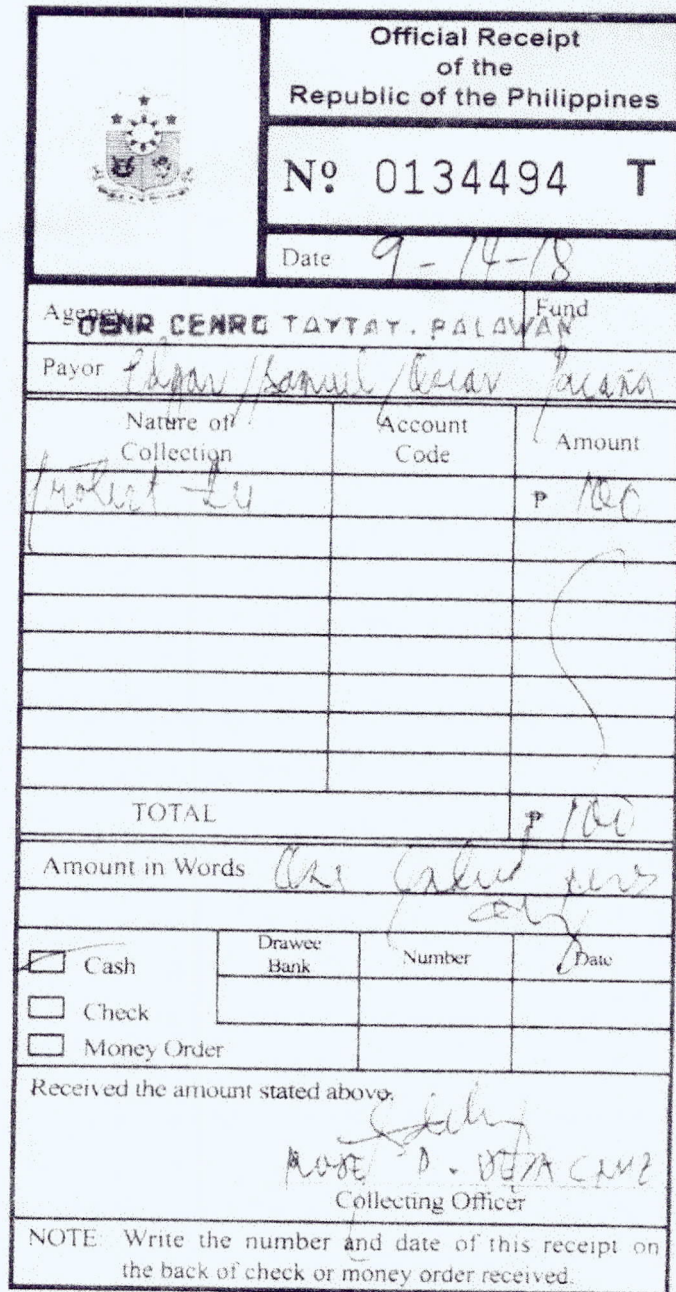 Official Receipt
of the
Republic of the Philippines
Nº 0134494 T
Date 9-14-18
Agency DENR CENRO TAYTAY, PALAWAN Fund
Payor Edgar/Samuel/Oscar
Nature of Collection Account Code Amount
Protest Fee ₱ 100
TOTAL ₱ 100
Amount in Words One pesos
only
Cash Drawee Bank Number Date
Check
Money Order
Received the amount stated above.
ROSE D. DELA CRUZ
Collecting Officer
NOTE: Write the number and date of this receipt on
the back of check or money order received.